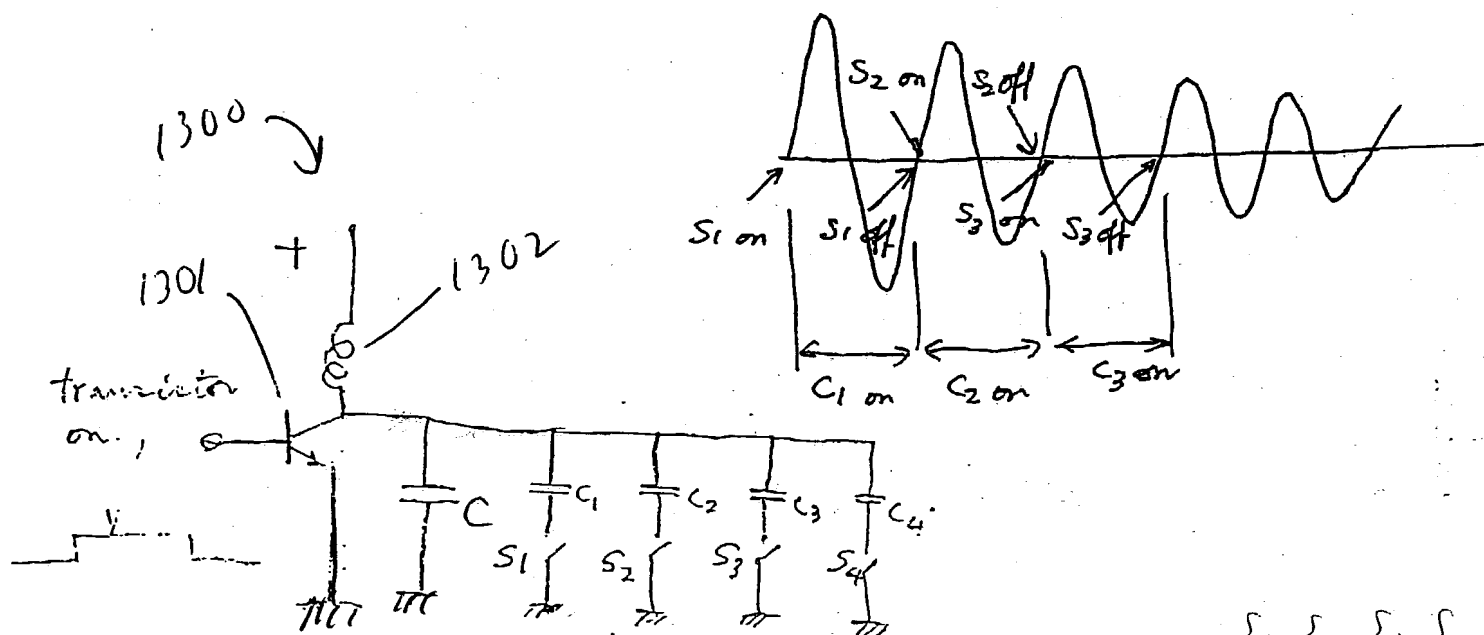 1300
S2 on
S2 off
S1 on
S1 off
S3 on
S3 off
C1 on
C2 on
C3 on
+
1301
1302
transistor
on.,
C
C1
C2
C3
C4
S1
S2
S3
S4